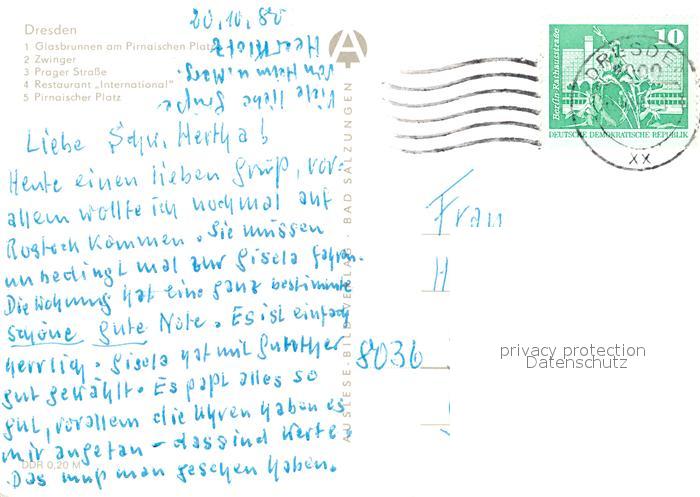 20.10.80
Dresden
1 Glasbrunnen am Pirnaischen Platz
2 Zwinger
3 Prager Straße
4 Restaurant „International"
5 Pirnaischer Platz
Liebe Schw. Hertha!
Heute einen lieben Gruß, vor-
allem wollte ich nochmal auf
Rostock kommen. Sie müssen
unbedingt mal zur Gisela fahren.
Die Wohnung hat eine ganz bestimmte
schöne gute Note. Es ist einfach
herrlich. Gisela hat mit Gunther
gut gewählt. Es paßt alles so
gut, vorallem die Uhren haben es
mir angetan - dass sind Werte.
Das muß man gesehen haben.
Viele liebe Grüße
von Ihrem u. Marg.
DDR 0,20 M
AUSLESE-BILD-VERLAG · BAD SALZUNGEN
A
Berlin, Rathausstraße
10
DEUTSCHE DEMOKRATISCHE REPUBLIK
DRESDEN
XX
Frau
H
8036
privacy protection
Datenschutz